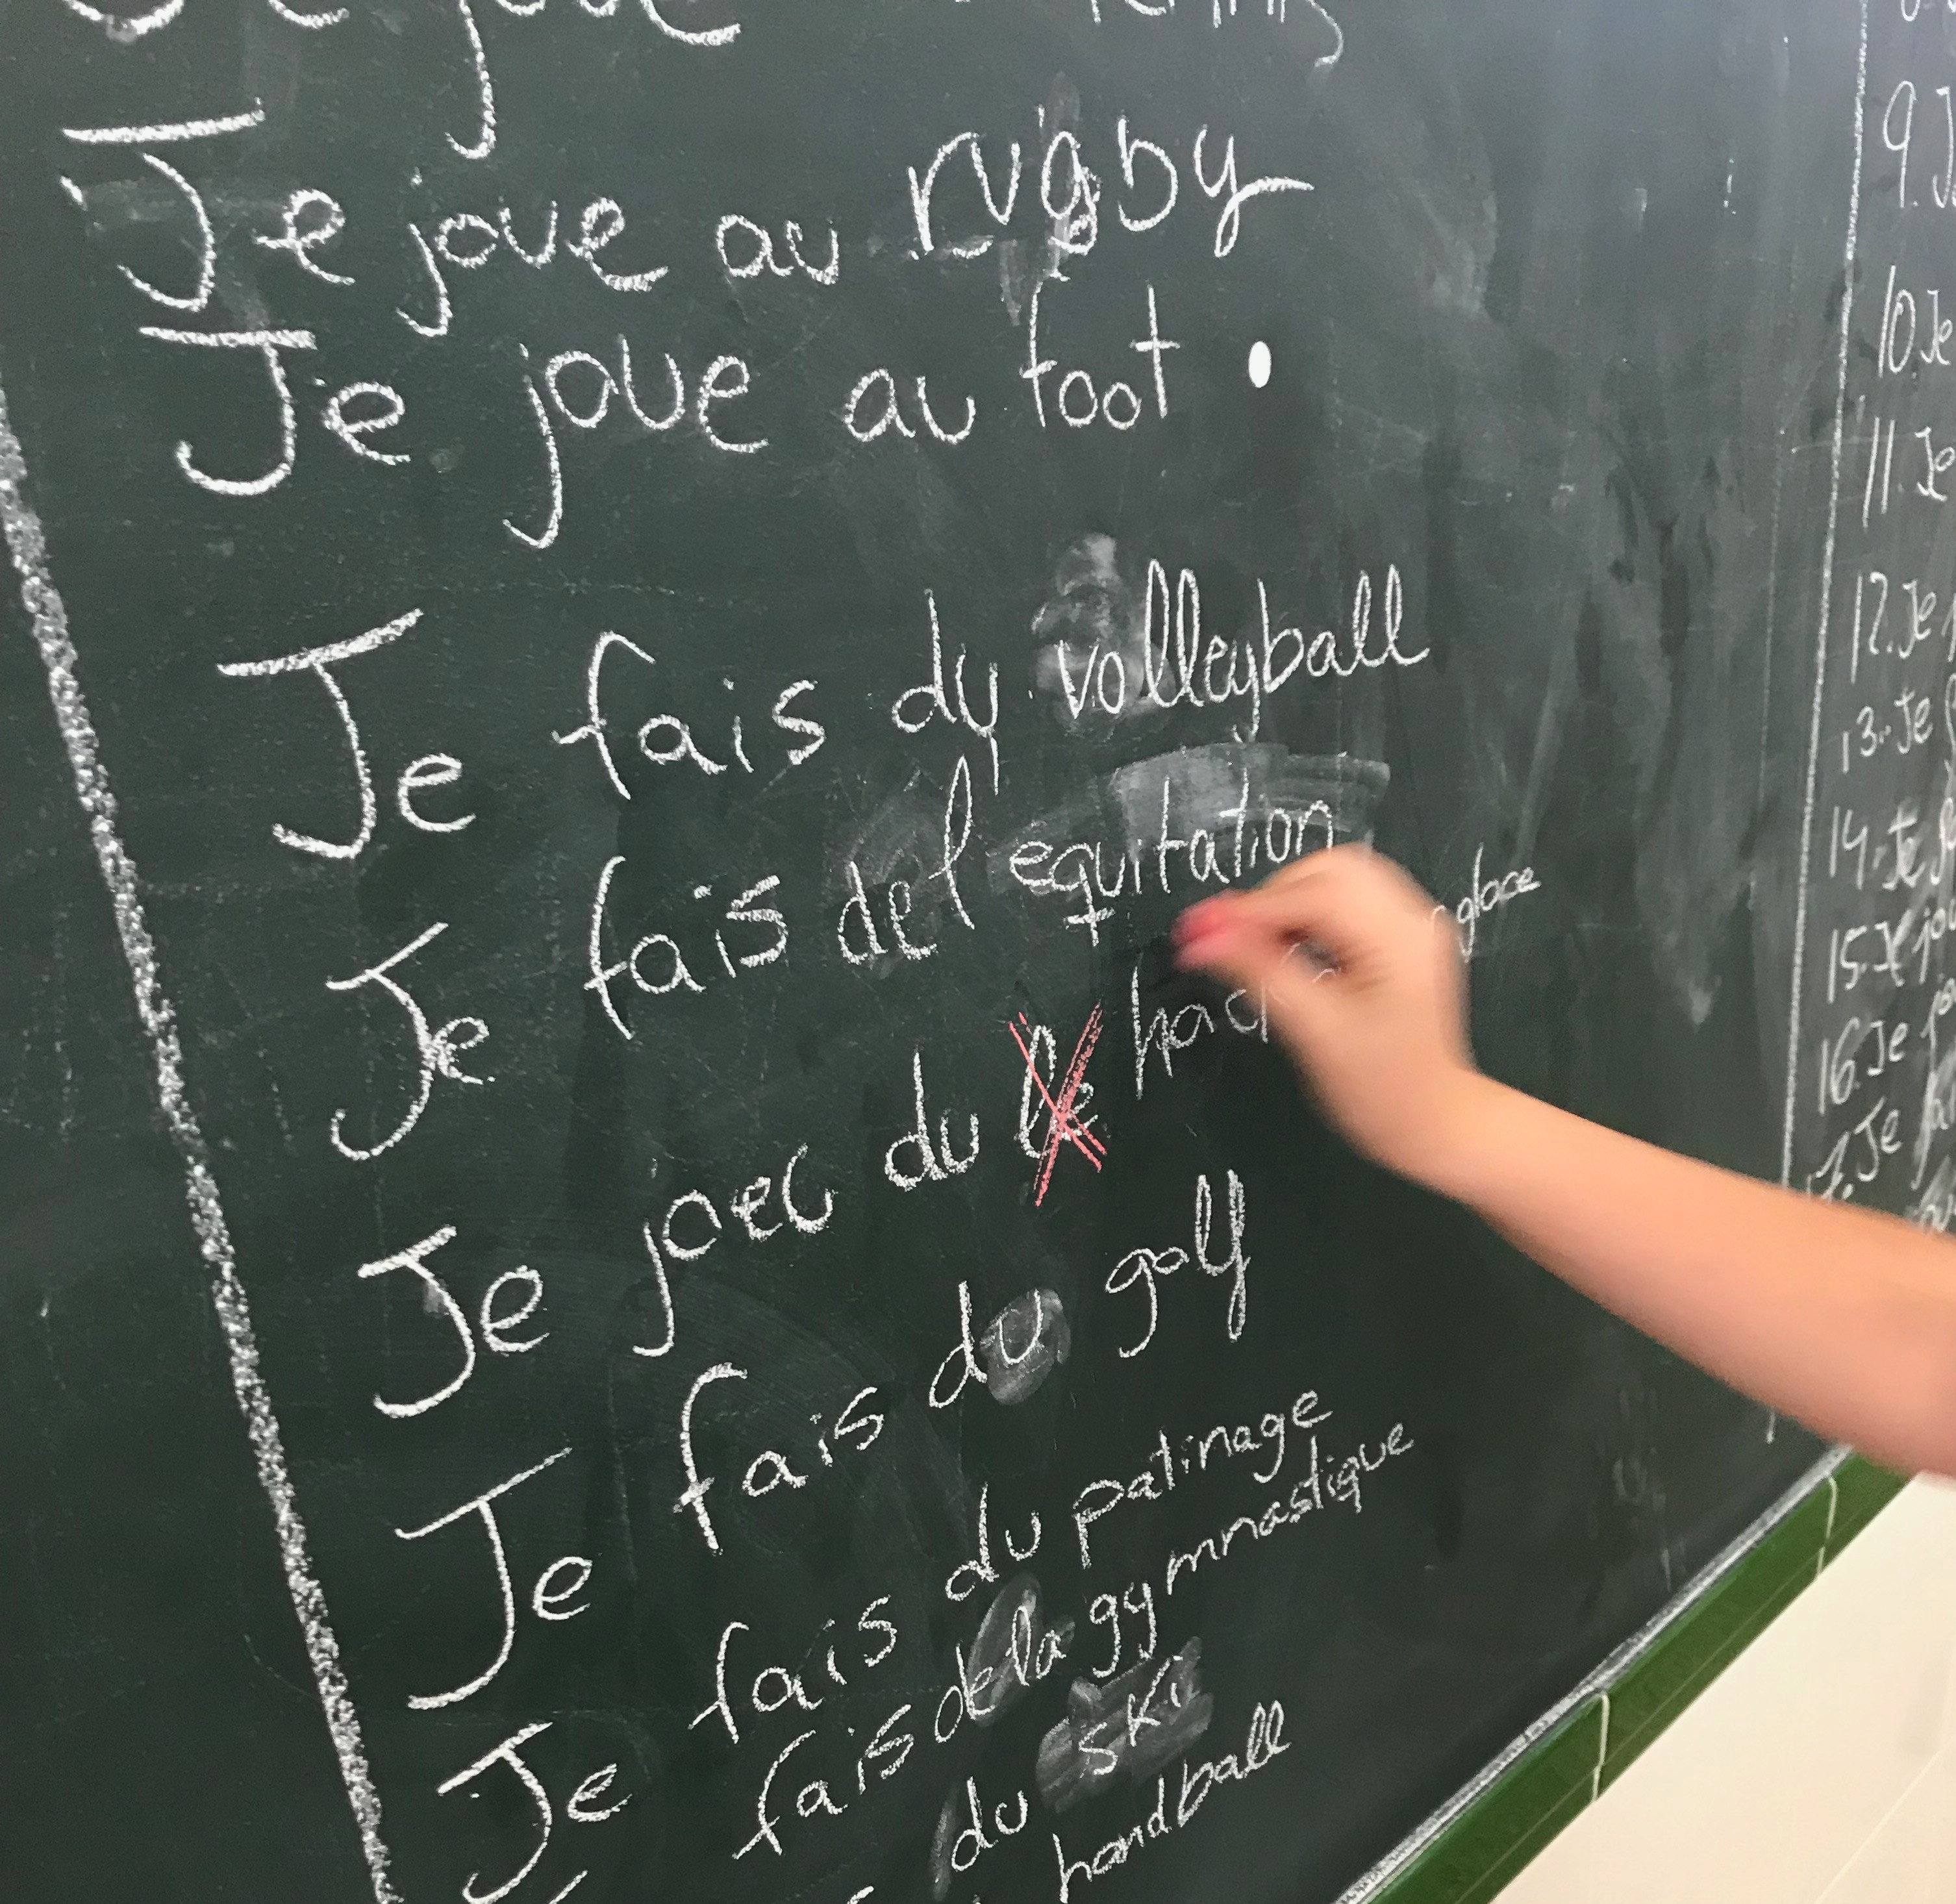 Je joue
Je joue au rugby
Je joue au foot.
Je fais du volleyball
Je fais de l'equitation
Je joec du le glace
Je fais du golf
Je fais du patinage
Je fais de la gymnastique
du ski
handball
9. J
10 Je
11. Je
12. Je
13. Je
14. Je
15. Je
16. Je
17. Je